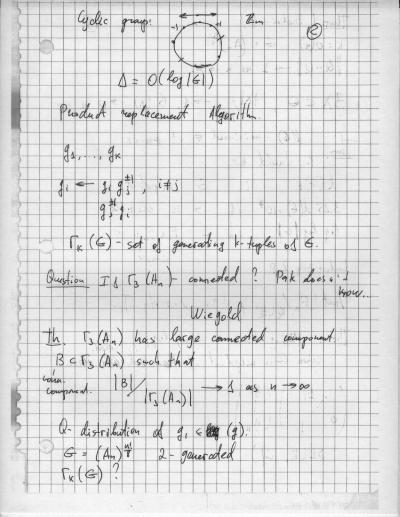 Cyclic group:
-1 +1 ℤm
②
Δ = O(log |G|)
Product replacement Algorithm.
g₁, ..., gₖ
gᵢ ← gᵢ gⱼ^±1, i≠j
gⱼ^±1 gᵢ
Γₖ(G) - set of generating k-tuples of G.
Question Is Γ₃(Aₙ) - connected? Pak doesn't
know...
Wiegold
Th. Γ₃(Aₙ) has large connected component.
B ⊂ Γ₃(Aₙ) such that
conn.
component.
|B| / |Γ₃(Aₙ)| → 1 as n → ∞
Q - distribution of g₁ ∈ (g).
G = (Aₙ)^ 2 - generated
Γₖ(G) ?